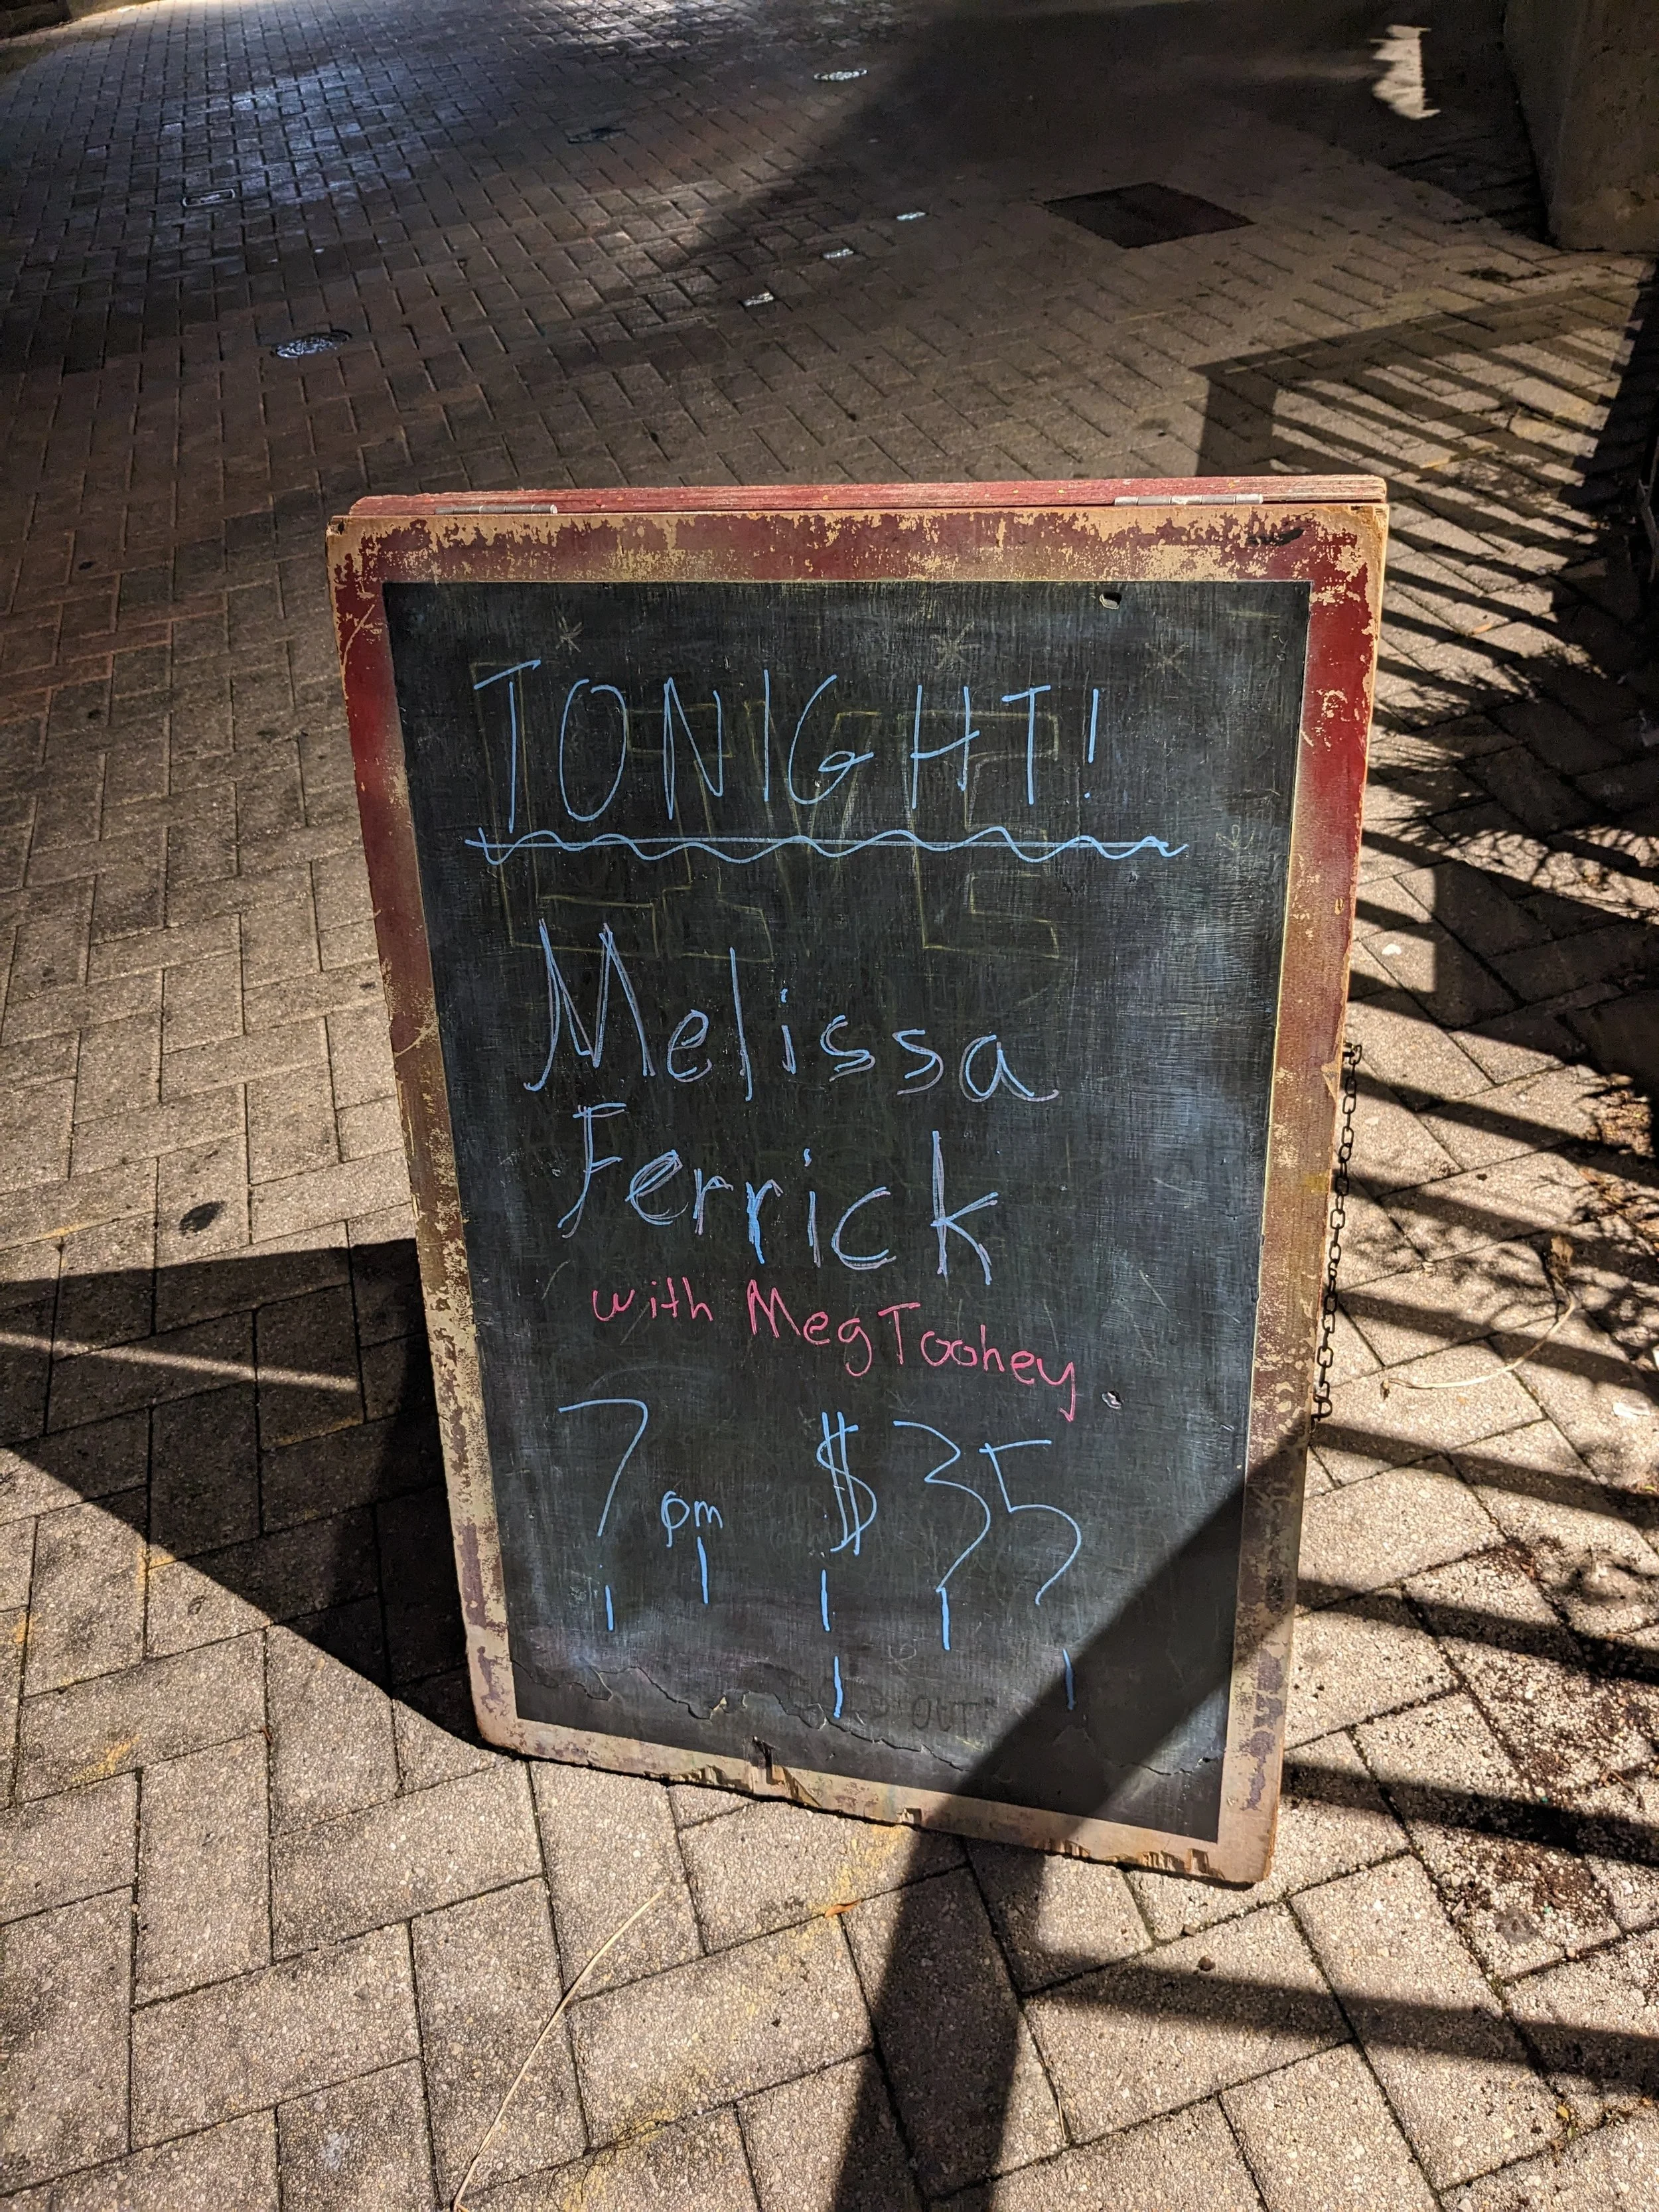 TONIGHT!
Melissa
Ferrick
with Meg Toohey
7pm $35
OUT